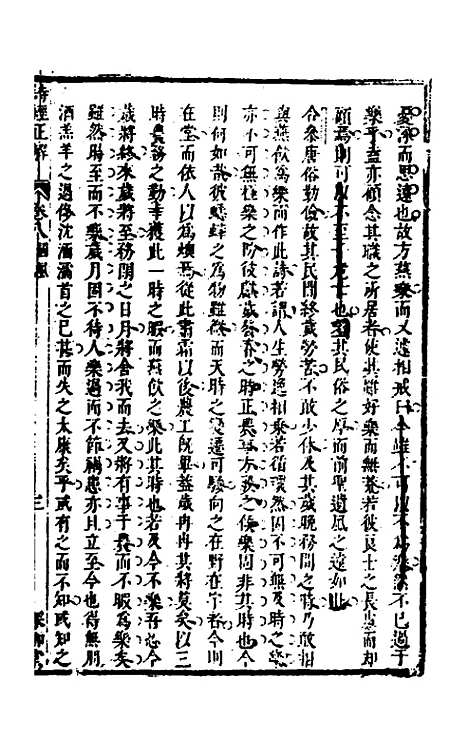 憂深而思遠也故方燕樂而又遽相戒曰今雖不可以不為樂然不已過于
樂乎盍亦顧念其職之所居者使其雖好樂而無荒若彼良士之長慮而却
顧焉則可以不至于危亡也蓋其民俗之厚而前聖遺風之遠如此
令衆唐俗勤儉故其民間終歲勞苦不敢少休及其歲晚務閒之時乃敢相
與燕飲為樂而作此詩若謂人生勞逸相乘若循環然固不可無及時之
亦不可無極樂之防彼歲方之時正農事方之候樂固非其時也今
則何如哉彼蟋蟀之為物雖微而天時之變遷可驗向之在野在宇者今則
在堂而依人以為燠焉從此肅霜以後農工旣畢蓋歲冉冉其將莫矣以三
時農務之勤幸獲此一時之暇而燕飲之樂此其時也若及今不樂吾恐今
歲將終來歲將至務閒之日月將舍我而去又將有事于農而不暇為樂矣
雖然勝至而不樂歲月固不待人樂過而不節禍患亦且立至今也得無朋
酒羔羊之過侈沈湎濡首之已甚而失之太康矣乎或有之而不知或知之
詩經正解 卷八 國風 三